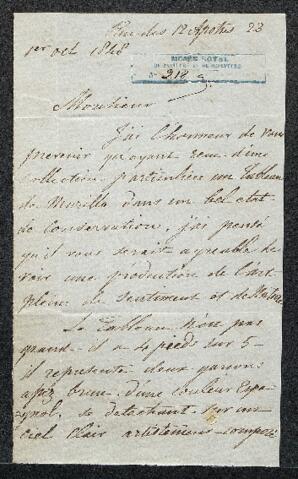 Rue des 12 Apôtres 23
1er oct 1848
MUSÉE ROYAL
DE PEINTURE ET DE SCULPTURE
N° 218
Monsieur
J'ai l'honneur de vous
prevenir qu'ayant reçu d'une
collection particuliere un tableau
de Murillo dans un bel etat
de conservation, j'ai pensé
qu'il vous serait agreable de
voir une production de l'art
pleine de sentiment et de
Le tableau n'est pas
grand - il a 4 pieds sur 5 -
il represente deux garçons
assez brun d'une couleur Espa
gnol, se detachant sur un
ciel clair artistement composé